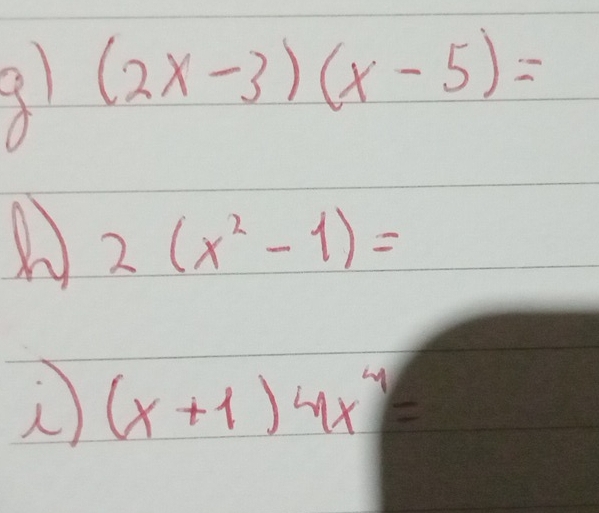 g) (2x - 3)(x - 5) =
h) 2 (x² - 1) =
i) (x + 1) 4x⁴ =